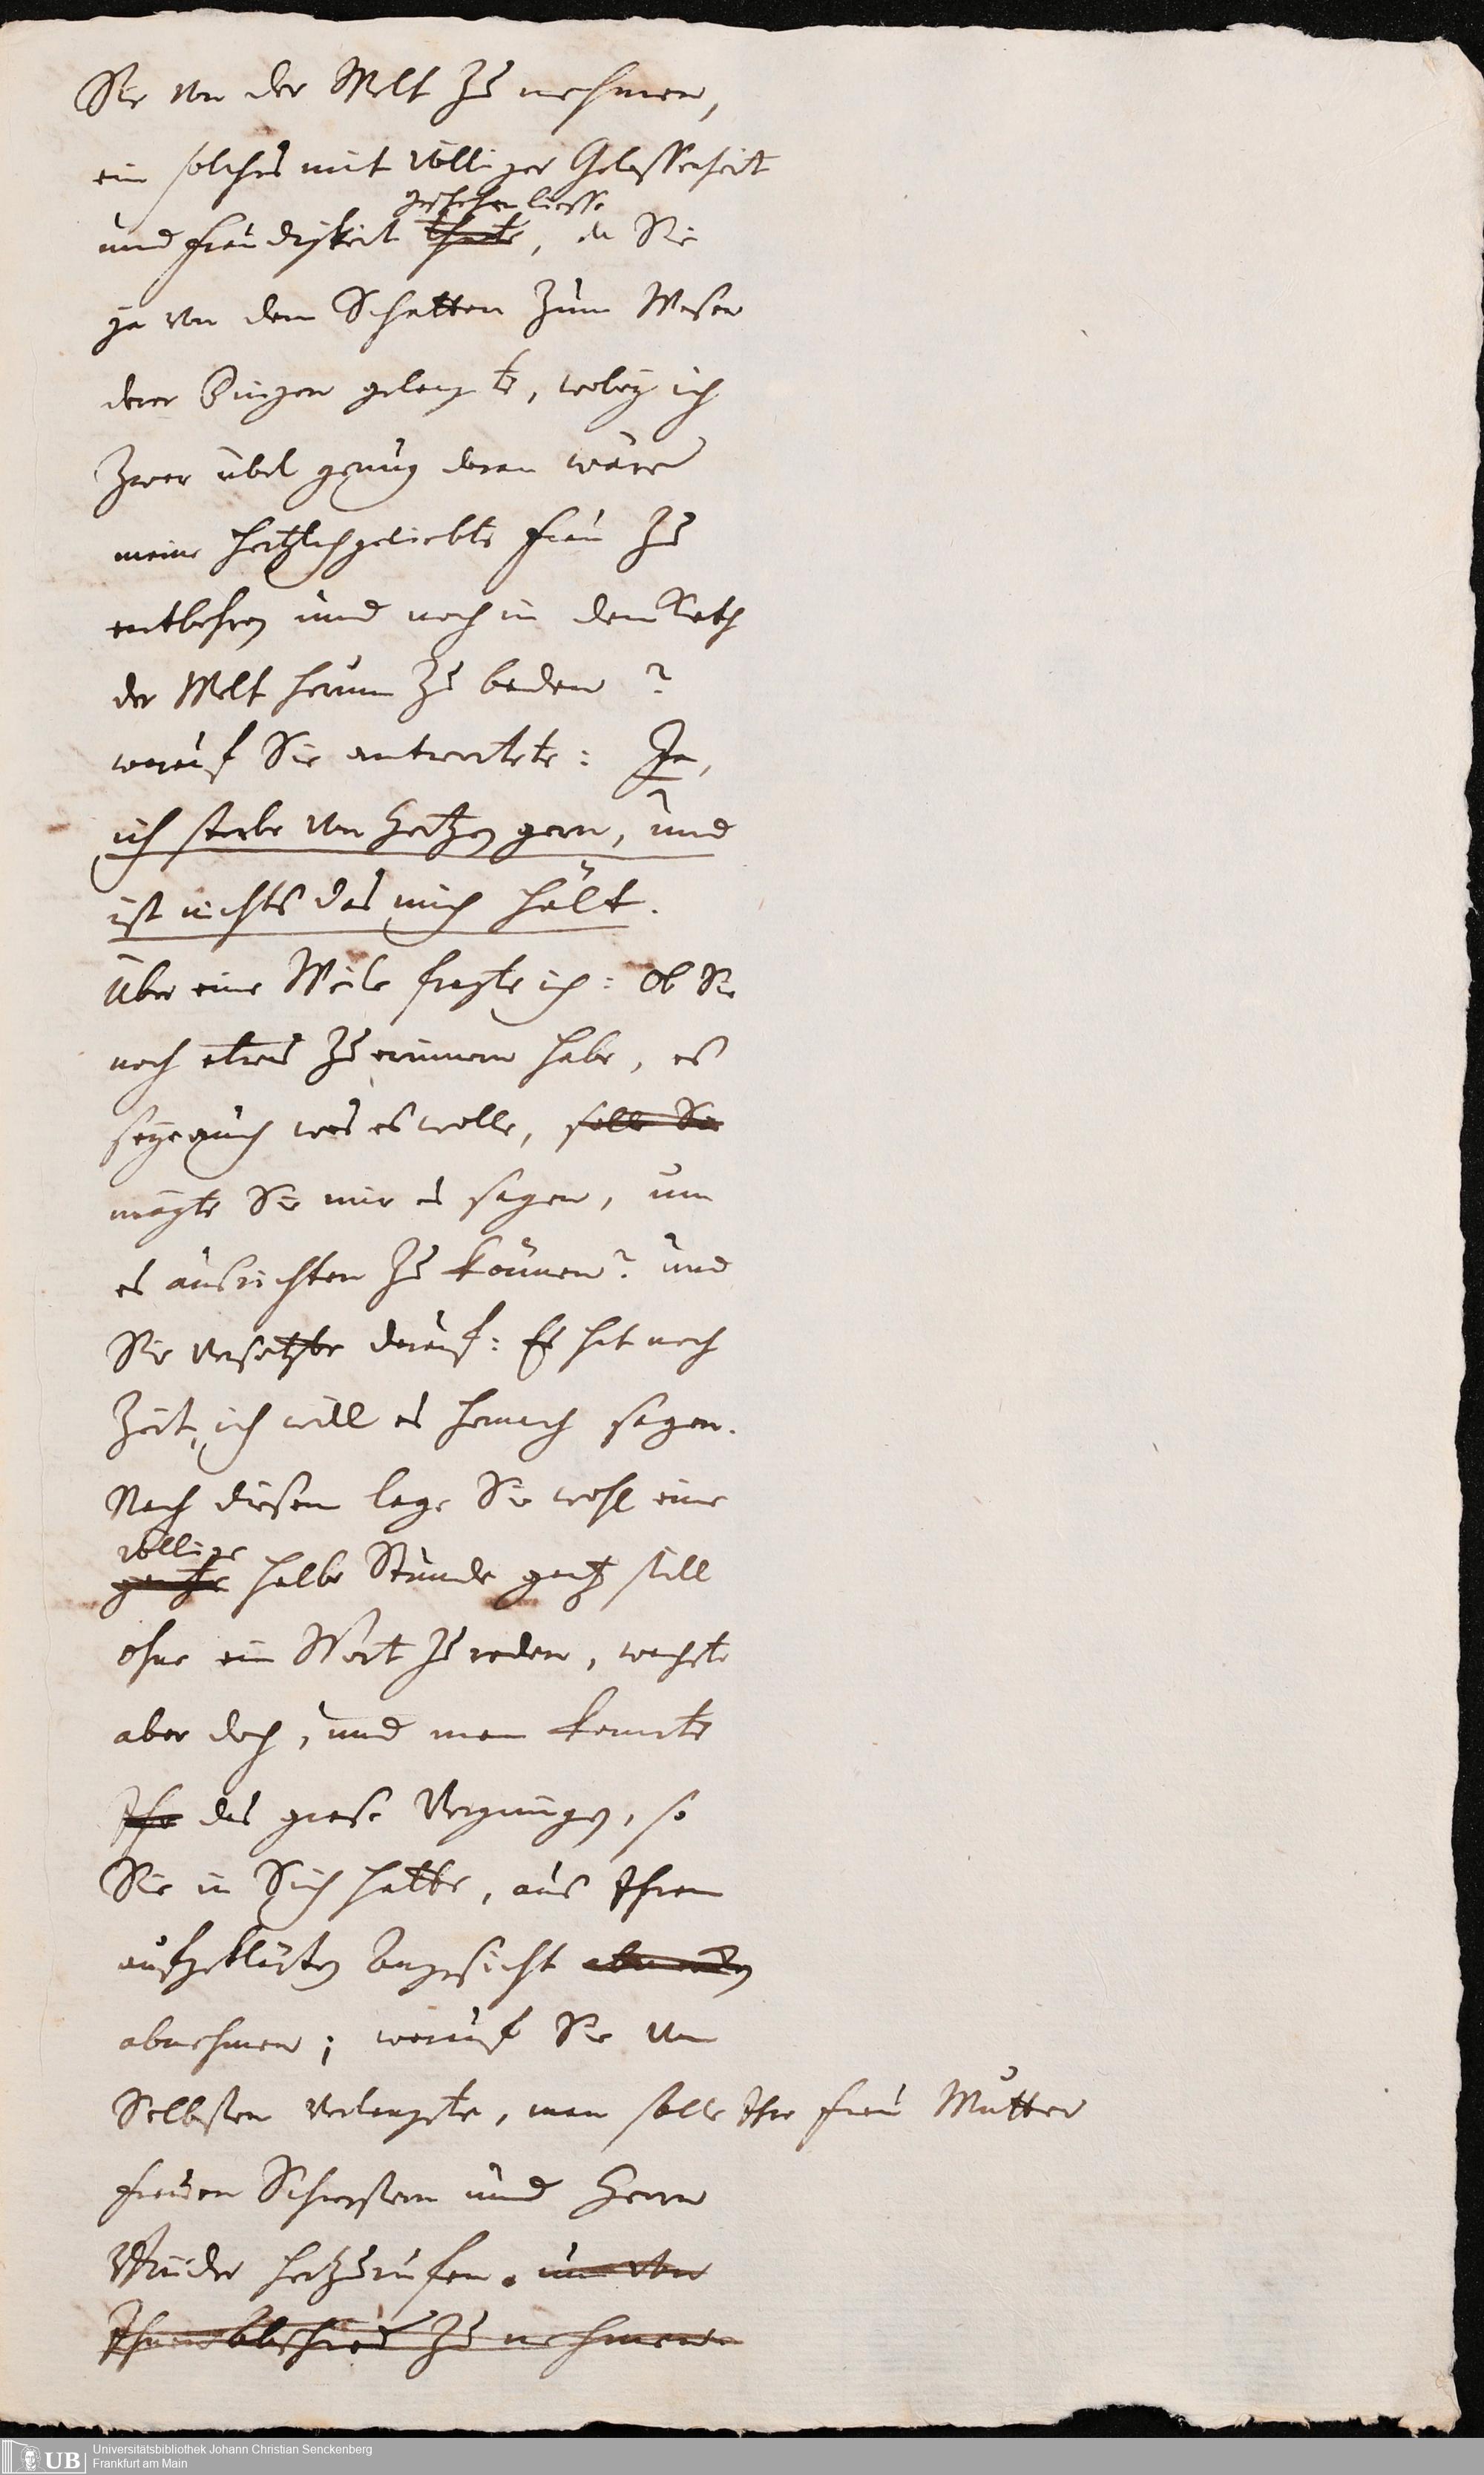 Sie von der Welt zu nehmen,
ein solches mit völliger Gelassenheit
geschehen liesse
und freudigkeit thäte, da Sie
ja von dem Schatten zum Wesen
derer Dingen gelangte, wobey ich
zwar übel genug daran wäre
meine hertzlichgeliebte frau zu
entbehren und noch in dem Koth
der Welt herum zu baden?
worauf Sie antwortete: Ja,
ich sterbe von Hertzen gern, und
ist nichts das mich hält.
Über eine Weile fragte ich: Ob Sie
noch etwas zu erinnern habe, es
seye auch was es wolle, solle Sie
mögte Sie mir es sagen, um
es ausrichten zu können? und
Sie versetzte darauf: Es hat noch
Zeit, ich will es hernach sagen.
Nach diesem lage Sie wohl eine
völlige
gantze halbe Stunde gantz still
ohne ein Wort zu reden, wachte
aber doch, und man konnte
Ihr das grose Vergnügen, so
Sie in Sich hatte, aus Ihrem
aufgeklärten Angesicht
abnehmen; worauf Sie von
Selbsten verlangte, man solle Ihre frau Mutter
frauen Schwestern und Herrn
Bruder herzurufen. um von
Ihnen Abschied zu nehmen
Universitätsbibliothek Johann Christian Senckenberg
UB
Frankfurt am Main